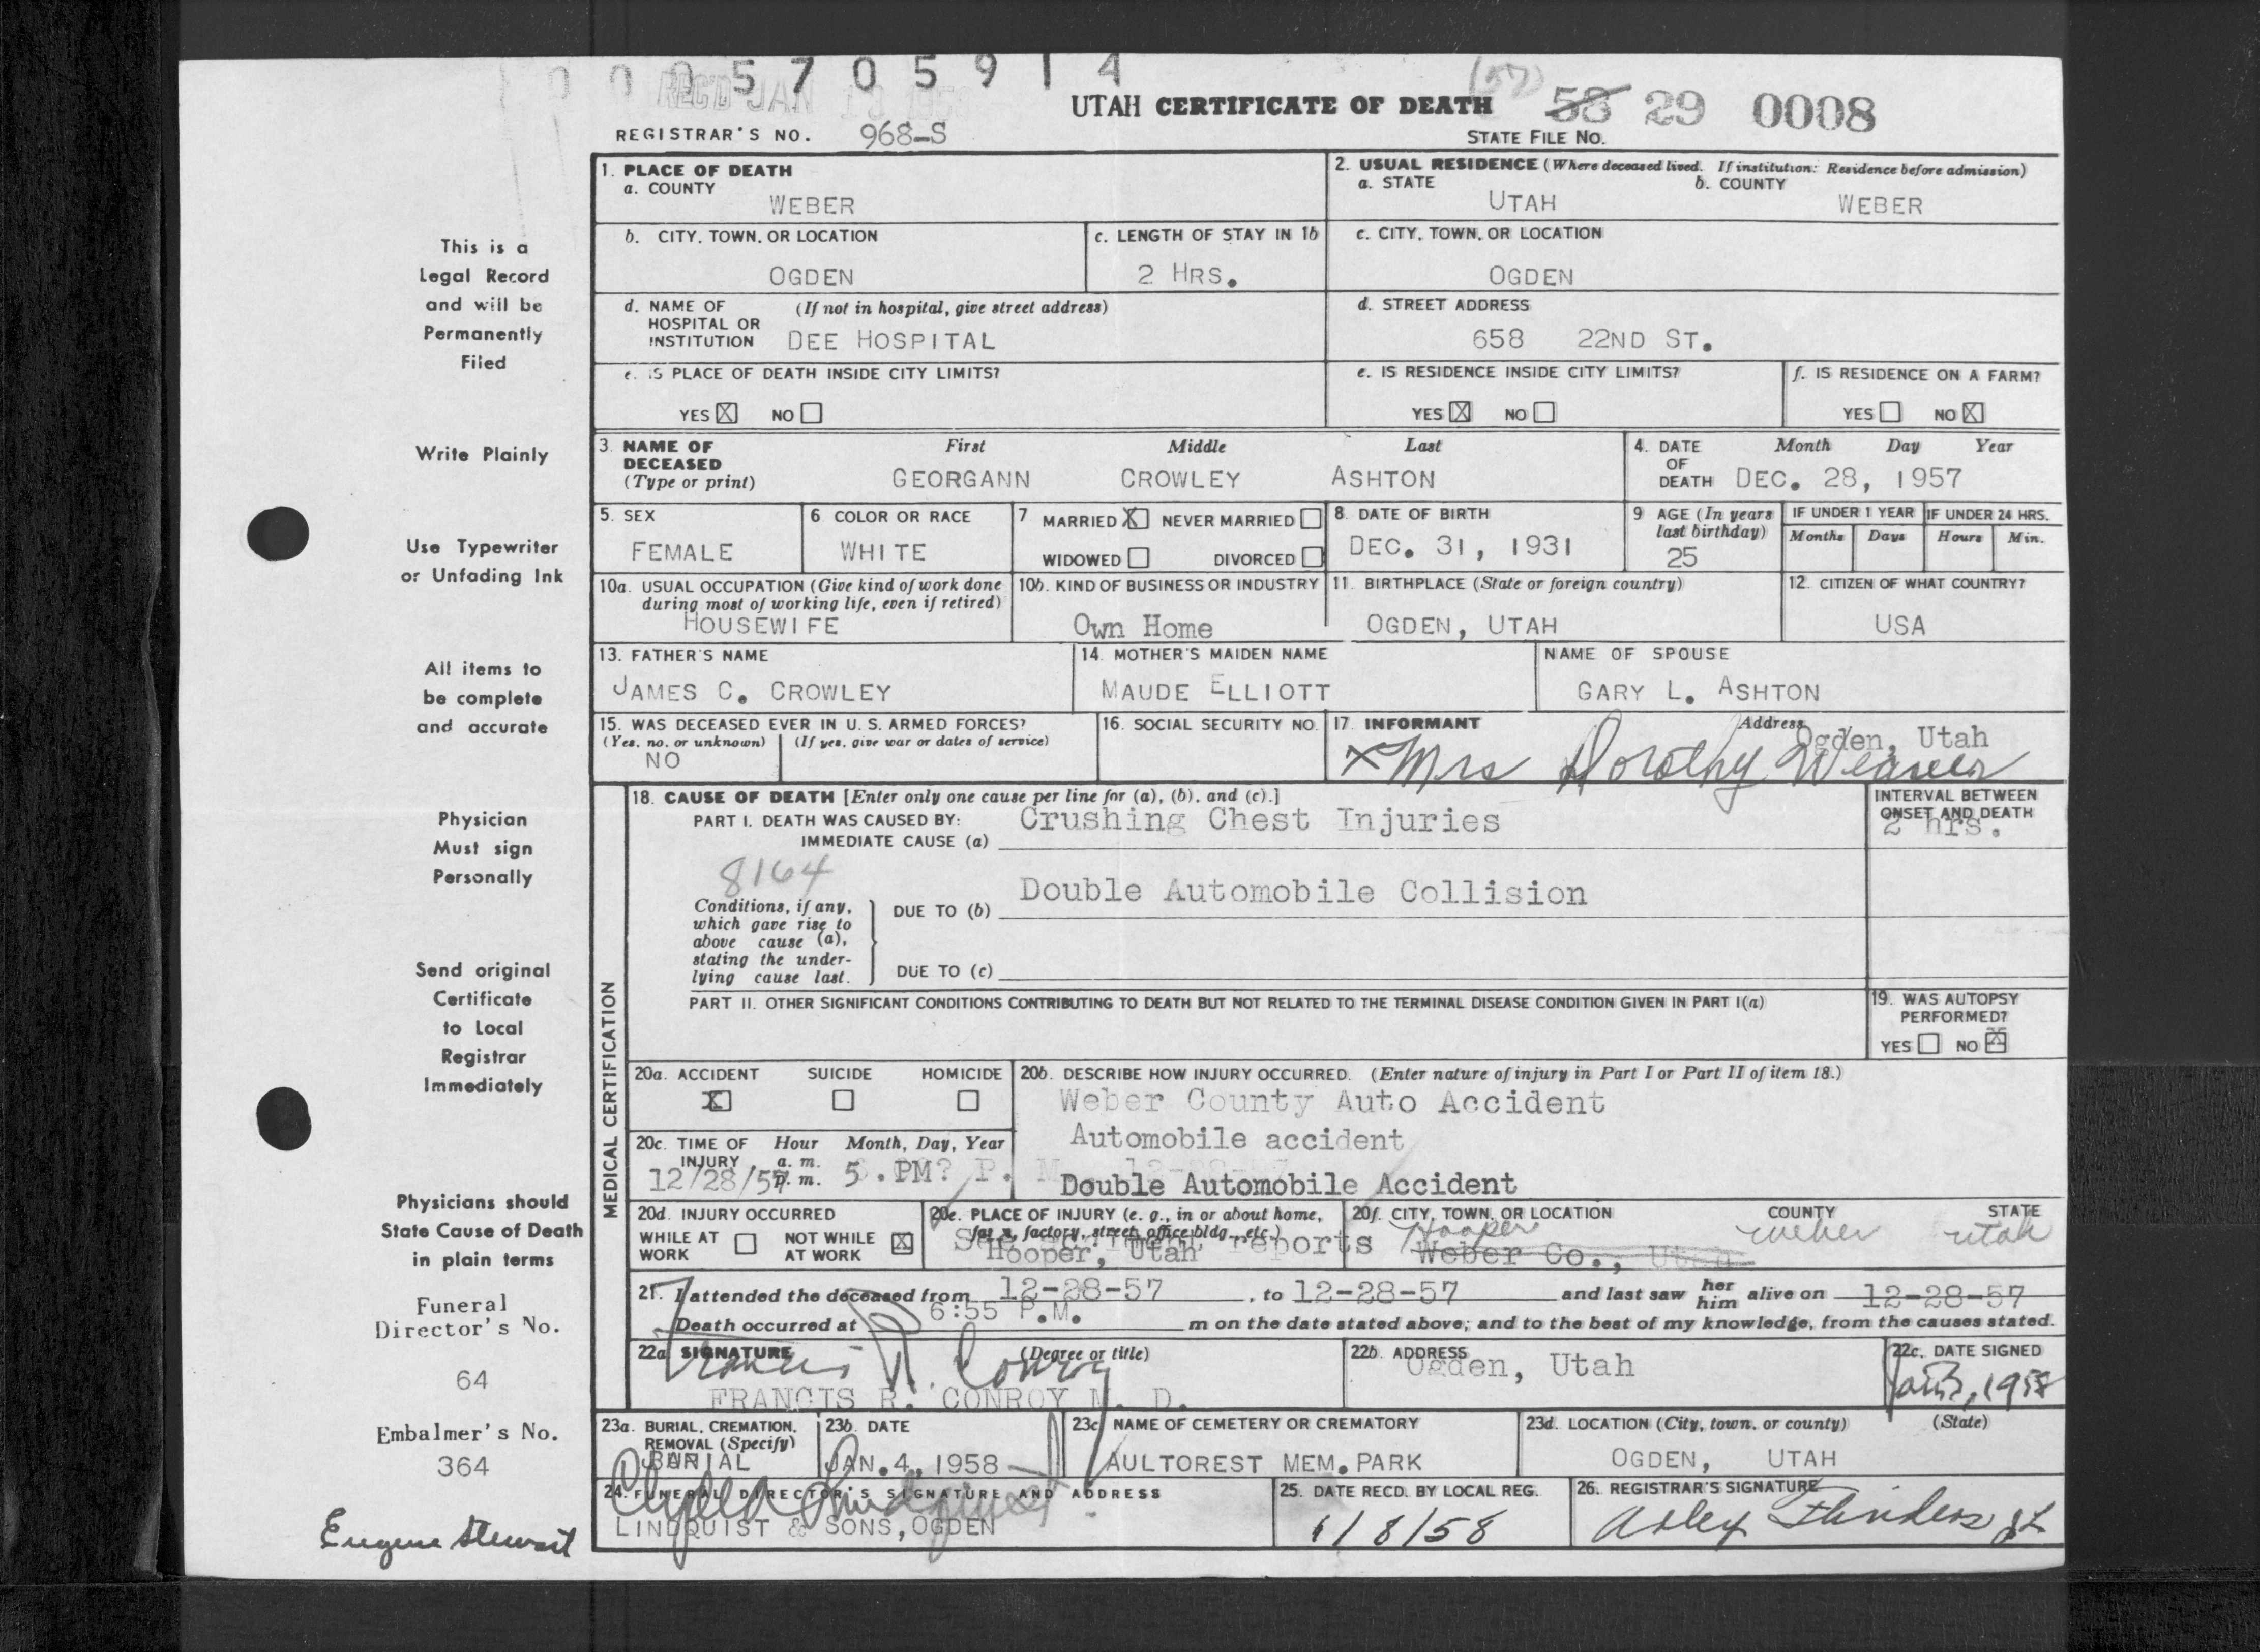 0005705914
REC'D JAN
(57)
UTAH CERTIFICATE OF DEATH 58 29 0008
REGISTRAR'S NO. 968-S STATE FILE NO.
1. PLACE OF DEATH
a. COUNTY
WEBER
2. USUAL RESIDENCE (Where deceased lived. If institution: Residence before admission)
a. STATE b. COUNTY
UTAH WEBER
b. CITY, TOWN, OR LOCATION
OGDEN
c. LENGTH OF STAY IN 1b
2 HRS.
c. CITY, TOWN, OR LOCATION
OGDEN
d. NAME OF (If not in hospital, give street address)
HOSPITAL OR
INSTITUTION DEE HOSPITAL
d. STREET ADDRESS
658 22ND ST.
e. IS PLACE OF DEATH INSIDE CITY LIMITS?
YES X NO
e. IS RESIDENCE INSIDE CITY LIMITS?
YES X NO
f. IS RESIDENCE ON A FARM?
YES NO X
3. NAME OF First Middle Last
DECEASED
(Type or print) GEORGANN CROWLEY ASHTON
4. DATE Month Day Year
OF
DEATH DEC. 28, 1957
5. SEX
FEMALE
6 COLOR OR RACE
WHITE
7 MARRIED X NEVER MARRIED
WIDOWED DIVORCED
8. DATE OF BIRTH
DEC. 31, 1931
9 AGE (In years
last birthday)
25
IF UNDER 1 YEAR IF UNDER 24 HRS.
Months Days Hours Min.
10a. USUAL OCCUPATION (Give kind of work done
during most of working life, even if retired)
HOUSEWIFE
10b. KIND OF BUSINESS OR INDUSTRY
Own Home
11. BIRTHPLACE (State or foreign country)
OGDEN, UTAH
12. CITIZEN OF WHAT COUNTRY?
USA
13. FATHER'S NAME
JAMES C. CROWLEY
14. MOTHER'S MAIDEN NAME
MAUDE ELLIOTT
NAME OF SPOUSE
GARY L. ASHTON
15. WAS DECEASED EVER IN U. S. ARMED FORCES?
(Yes, no, or unknown) (If yes, give war or dates of service)
NO
16. SOCIAL SECURITY NO.
17. INFORMANT Address
Ogden, Utah
x Mrs Dorothy Weaver
MEDICAL CERTIFICATION
18. CAUSE OF DEATH [Enter only one cause per line for (a), (b), and (c).]
PART I. DEATH WAS CAUSED BY:
IMMEDIATE CAUSE (a) Crushing Chest Injuries
INTERVAL BETWEEN
ONSET AND DEATH
2 hrs.
8164
Conditions, if any,
which gave rise to
above cause (a),
stating the under-
lying cause last.
DUE TO (b) Double Automobile Collision
DUE TO (c)
PART II. OTHER SIGNIFICANT CONDITIONS CONTRIBUTING TO DEATH BUT NOT RELATED TO THE TERMINAL DISEASE CONDITION GIVEN IN PART I(a)
19. WAS AUTOPSY
PERFORMED?
YES NO X
20a. ACCIDENT SUICIDE HOMICIDE
X
20b. DESCRIBE HOW INJURY OCCURRED. (Enter nature of injury in Part I or Part II of item 18.)
Weber County Auto Accident
Automobile accident
Double Automobile Accident
20c. TIME OF Hour Month, Day, Year
INJURY a. m.
12/28/57 p. m. 5 .PM?
20d. INJURY OCCURRED
WHILE AT WORK NOT WHILE AT WORK X
20e. PLACE OF INJURY (e. g., in or about home,
farm, factory, street, office bldg., etc.)
reports
Hooper, Utah
20f. CITY, TOWN, OR LOCATION COUNTY STATE
Hooper Weber Utah
Weber Co., Utah
21. I attended the deceased from 12-28-57, to 12-28-57 and last saw her him alive on 12-28-57
Death occurred at 6:55 P.M. m on the date stated above; and to the best of my knowledge, from the causes stated.
22a SIGNATURE (Degree or title)
Francis R. Conroy
FRANCIS R. CONROY M. D.
22b. ADDRESS
Ogden, Utah
22c. DATE SIGNED
1958
23a. BURIAL, CREMATION,
REMOVAL (Specify)
BURIAL
23b. DATE
JAN. 4, 1958
23c NAME OF CEMETERY OR CREMATORY
AULTOREST MEM. PARK
23d. LOCATION (City, town, or county) (State)
OGDEN, UTAH
24. FUNERAL DIRECTOR'S SIGNATURE AND ADDRESS
LINDQUIST & SONS, OGDEN
25. DATE RECD. BY LOCAL REG.
1/8/58
26. REGISTRAR'S SIGNATURE
Flinders
This is a
Legal Record
and will be
Permanently
Filed
Write Plainly
Use Typewriter
or Unfading Ink
All items to
be complete
and accurate
Physician
Must sign
Personally
Send original
Certificate
to Local
Registrar
Immediately
Physicians should
State Cause of Death
in plain terms
Funeral
Director's No.
64
Embalmer's No.
364
Eugene Stewart